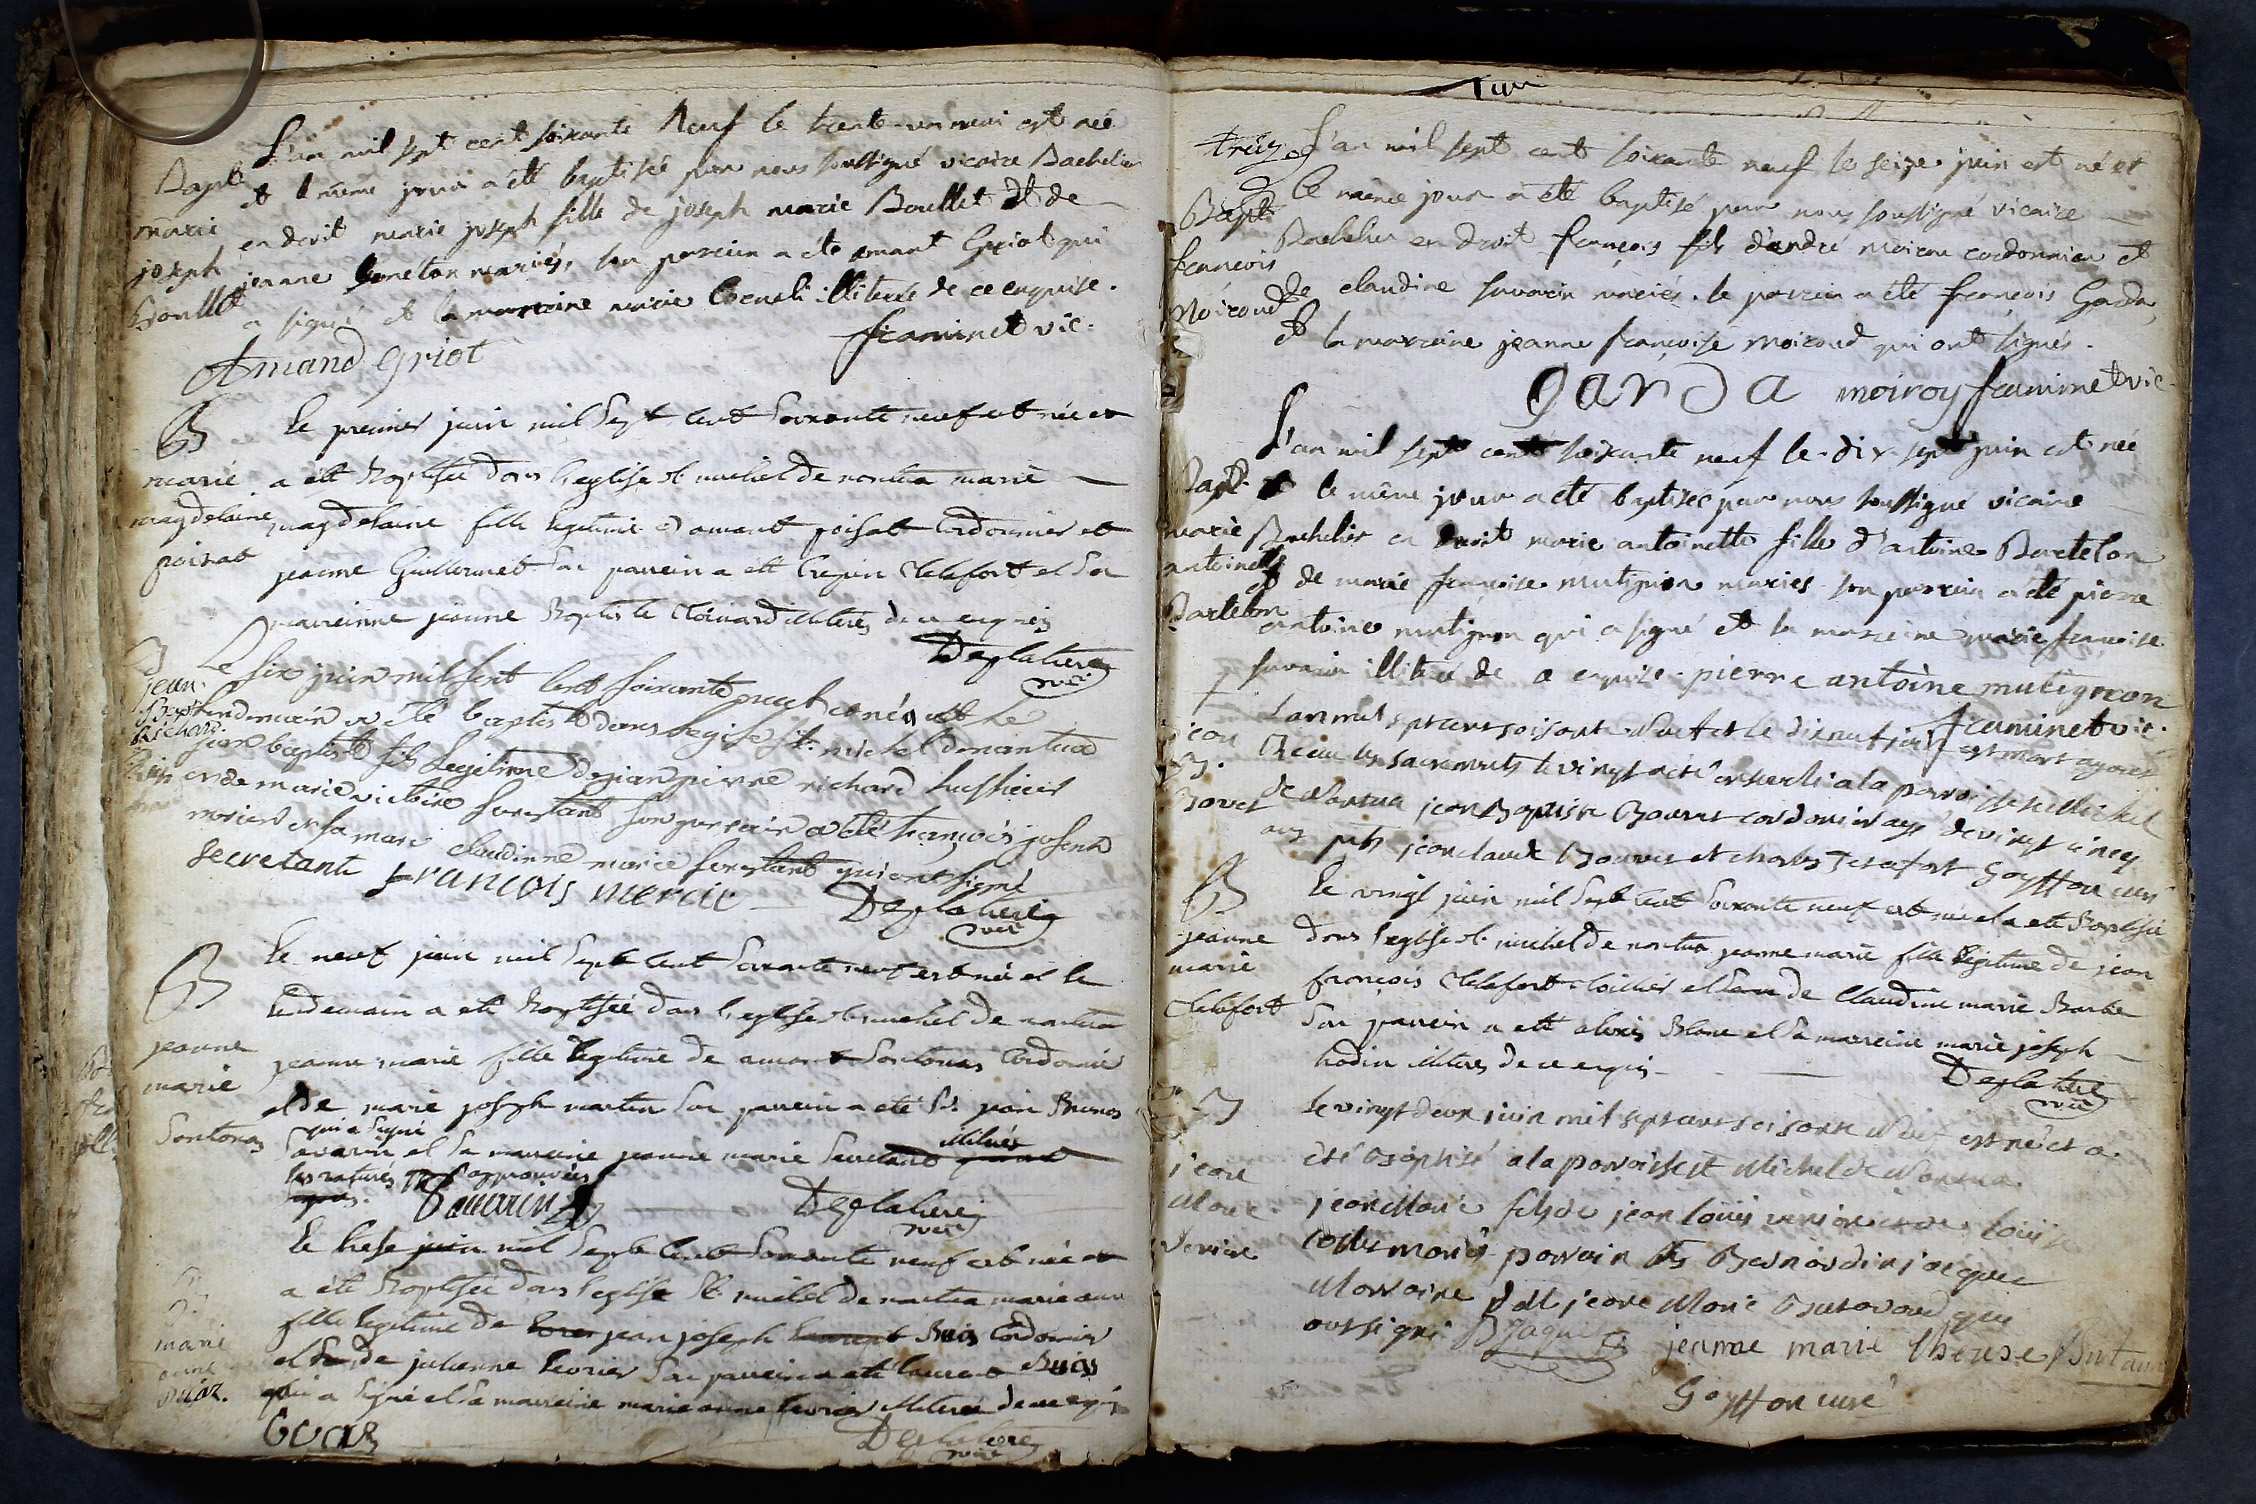 L'an mil sept cent soixante Neuf le trente-un mai est née
Bapt. et le même jour a été baptisée par nous soussigné vicaire Bachelier
marie en droit marie joseph fille de joseph marie Boullet et de
joseph jeanne mariés, son parrain a été amant Griot qui
Boullet a signé et la marraine marie illiterée de ce enquise.
Amand griot framinet vic.
B Le premier juin mil Sept Cent Soixante neuf est née et
marie a été Baptisée dans l'eglise st. michel de nantua marie
magdelaine magdelaine fille legitime d'amant poisat Cordonnier et
poisat jeanne Guillermet Son parrein a été Crepin Chelafort et Sa
marreinne jeanne Baptiste illiterés de ce enquis
Deglatiere
vice
B Le six juin mil sept Cent soixante neuf est né et le
jean. lendemain a été baptisé dans l'eglise st. michel de nantua
Bapt. Richard. jean baptiste fils Legitime de jean pierre richard huissier
et de marie victoire Secretant son parrain a été françois joseph
mercier et sa mare claudinne marie Secretant qui ont signé
secretant françois mercie Deglatiere
vice
B Le neuf juin mil Sept Cent Soixante neuf est née et le
lendemain a été Baptisée dans l'eglise st. michel de nantua
jeanne jeanne marie fille legitime de amant Sontonas Cordonnier
marie et de marie joseph martin Son parrein a été Sr. jean Brunos
Sontonas qui a Signé
Savarin et Sa marreine jeanne marie Secretant illiterée
les raturés approuvés
Savarin Deglatiere
vice
Le treise juin mil Sept Cent Soixante neuf est née et
B. a été Baptisée dans l'eglise St. michel de nantua marie anne
marie fille legitime de jean joseph Buis Cordonnier
anne et de julienne levrier Son parrein a été laurent Buis
qui a Signé et Sa marreine marie anne levrier illiterée de ce enquis
Deglatiere
vice
treize L'an mil sept cent soixante neuf le seize juin est né et
Bapt. le même jour a été baptisé par nous soussigné vicaire
françois Bachelier en droit françois fils d'andré moirou cordonnier et
Moiroud de claudine savarin mariés. le parrein a été françois Garda,
et la marraine jeanne françoise moiroud qui ont signés.
garda moiroy framinet vic.
L'an mil sept cent soixante neuf le dix-sept juin est née
Bapt. et le même jour a été baptisée par nous soussigné vicaire
marie Bachelier en droit marie antoinette fille d'antoine Bartelon
antoinette et de marie françoise mutignon mariés son parrein a été pierre
Bartelon antoine mutignon qui a signé et la marreine marie françoise
savarin illiterée de ce enquise. pierre antoine mutignon
framinet vic.
jean L'an mil sept cent soisante Neuf et le dix neuf juin est mort ayant
B. Recu les sacrements le vingt a été enseveli a la parroisse st Michel
Bovet de Nantua jean Baptiste Bouvet cordonnier agé de vingt cinq
ans pnts jean claude Bouvet et charles Goyffon curé
B Le vingt juin mil Sept Cent Soixante neuf est née et a été Baptisée
jeanne dans l'eglise st. michel de nantua jeanne marie fille legitime de jean
marie françois Chelafort et de Claudine marie Barbe
Chelafort Son parrein a été alexis Blanc et Sa marreine marie joseph
hodin illiterés de ce enquis
Deglatiere
vice
B Le vingt deux juin mil sept cent soisante Neuf est né et a
été Baptisé a la parroisse st Michel de Nantua
jean jean Marie fils de jean louis et de louise
Marie mariés parrain Bernardin jacque
Marraine jeane Marie qui
ont signé B Jaquet jeanne marie therese
Goyffon curé